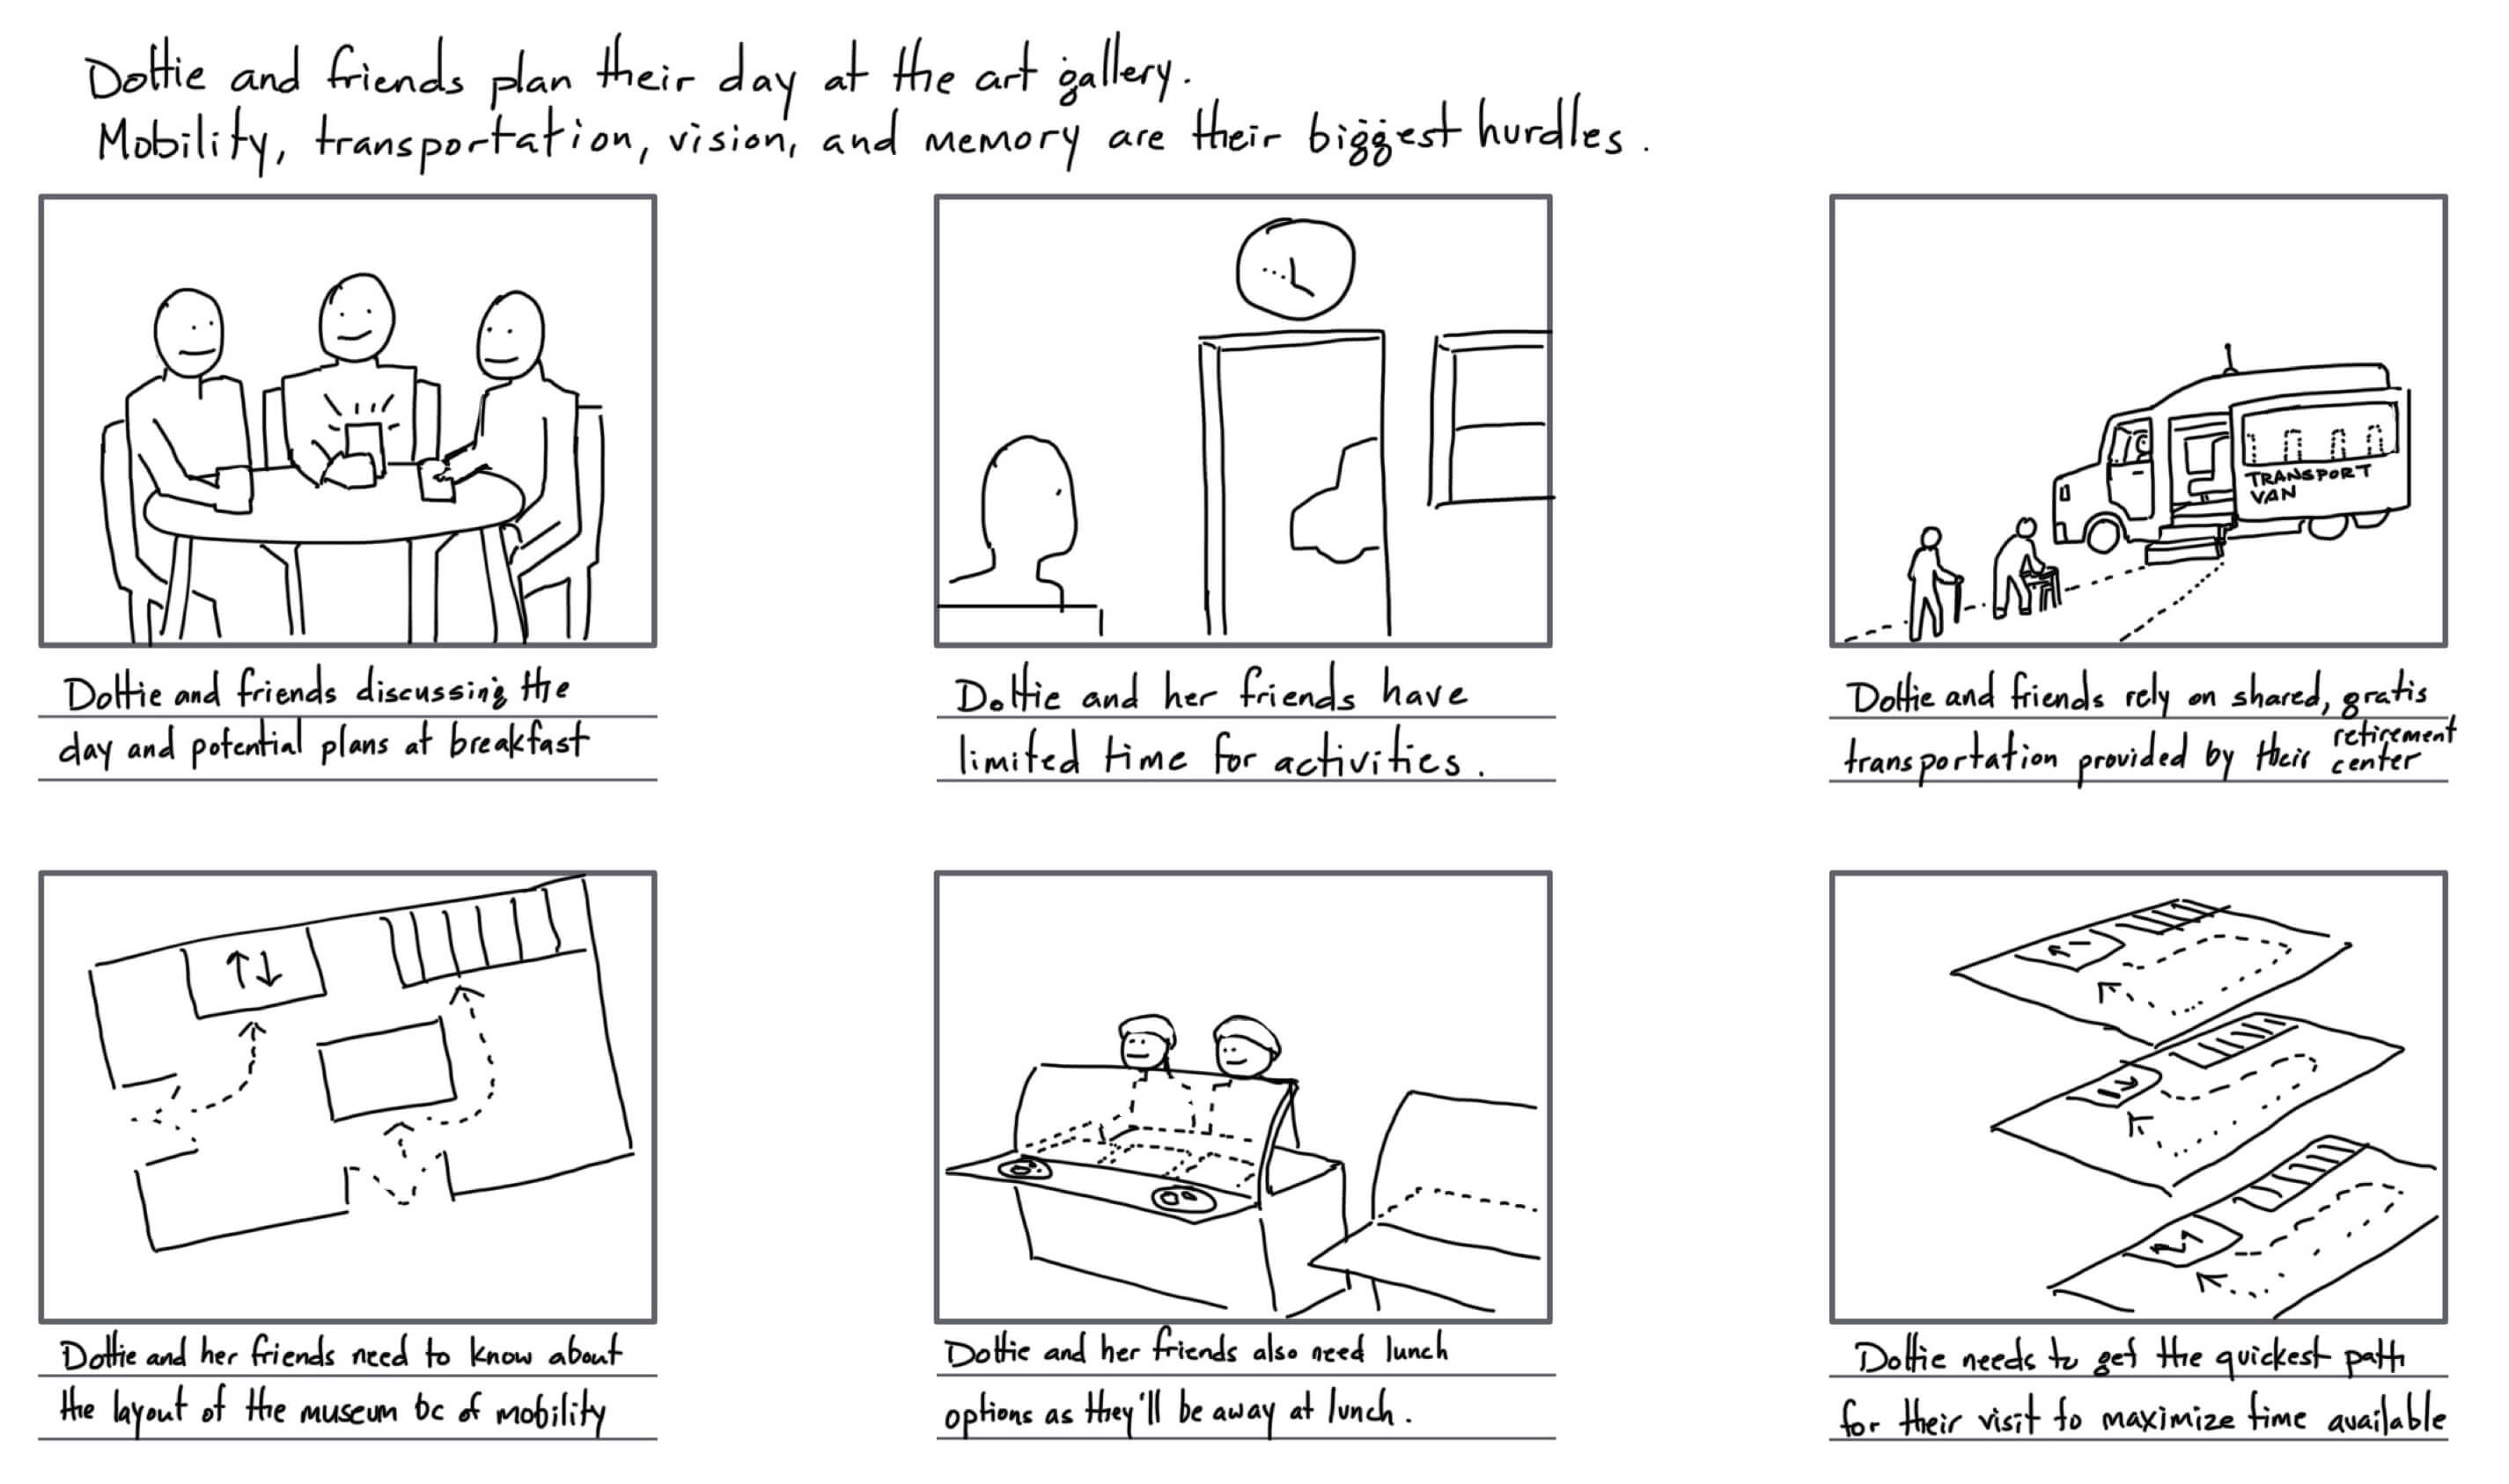 Dottie and friends plan their day at the art gallery.
Mobility, transportation, vision, and memory are their biggest hurdles.
Dottie and friends discussing the
day and potential plans at breakfast
Dottie and her friends have
limited time for activities.
TRANSPORT
VAN
Dottie and friends rely on shared, gratis
transportation provided by their retirement
center
Dottie and her friends need to know about
the layout of the museum bc of mobility
Dottie and her friends also need lunch
options as they'll be away at lunch.
Dottie needs to get the quickest path
for their visit to maximize time available